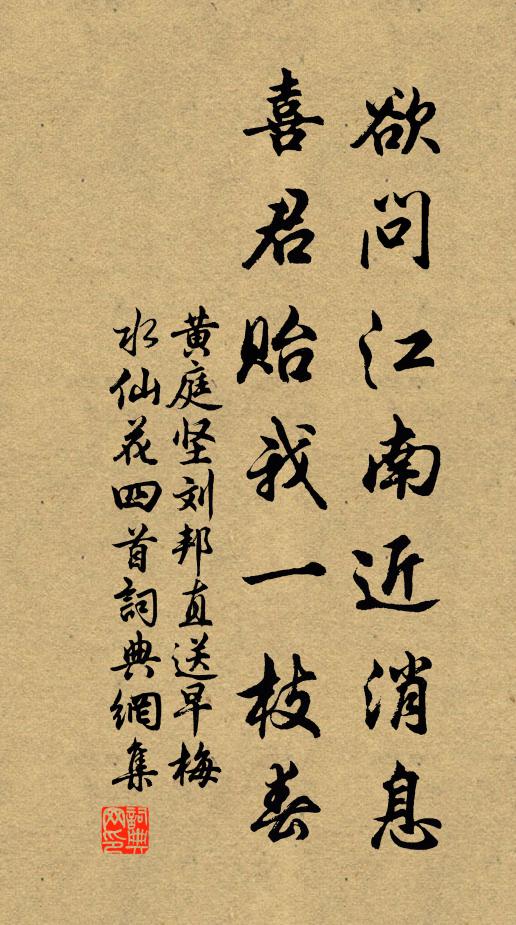 欲问江南近消息
喜君贻我一枝春
黄庭坚刘邦直送早梅
水仙花四首詞典網集
詞典网印